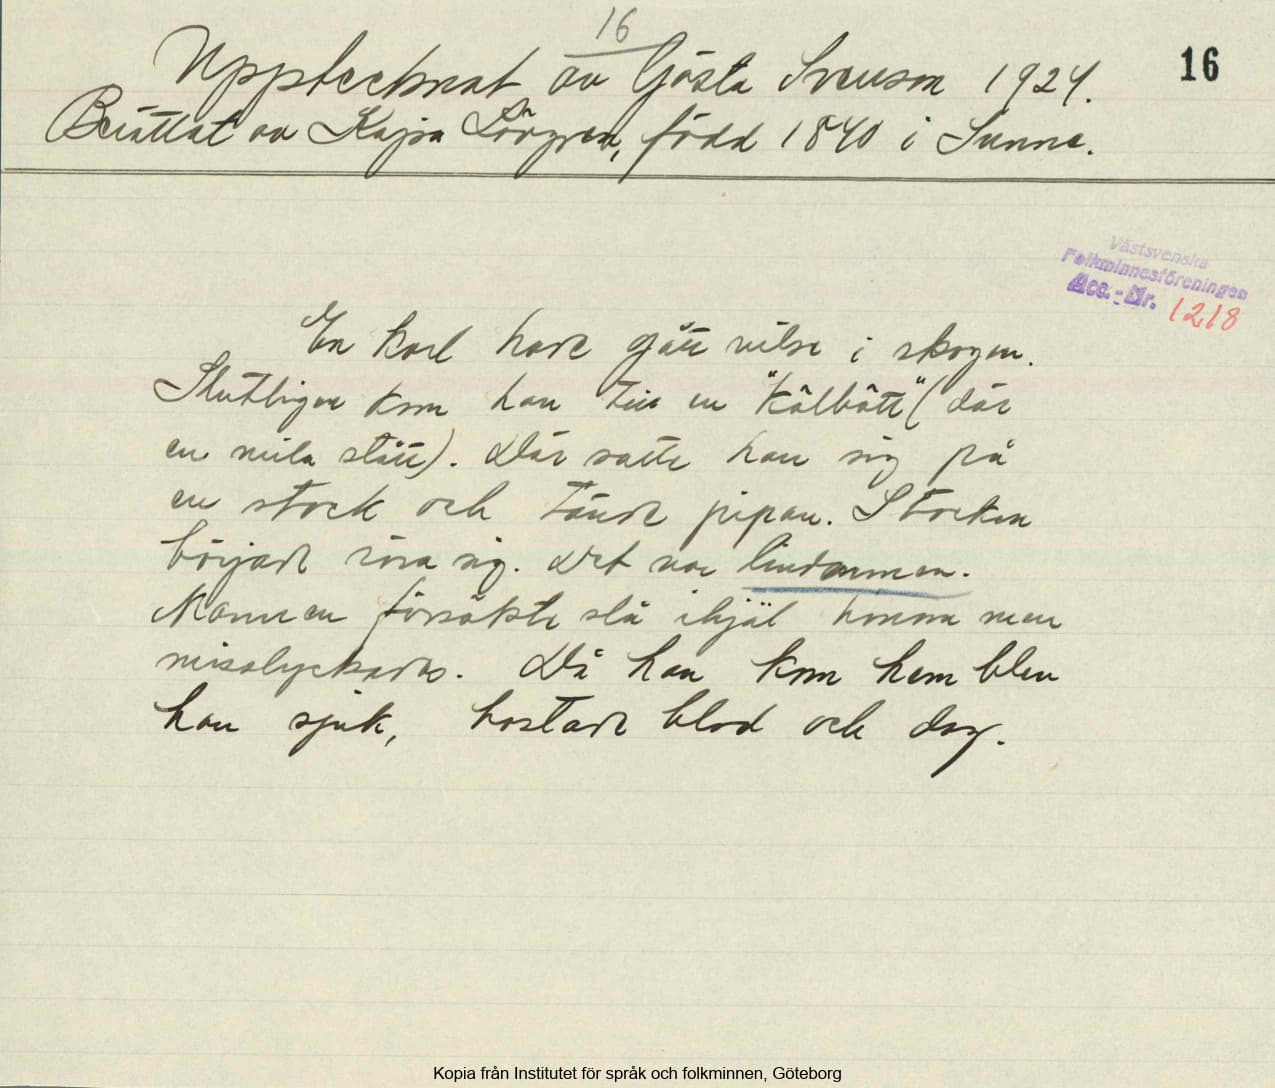 16
Upptecknat av Gösta Svenson 1924.
16
Berättat av Kajsa Lövgren, född 1840 i Sunne.
Västsvenska
Folkminnesföreningen
Acc.-Nr. 1218
En karl hade gått vilse i skogen.
Slutligen kom han till en "kålbått" (där
en mila stått). Där satte han sig på
en stock och tände pipan. Stocken
började röra sig. Det var lindormen.
Mannen försökte slå ihjäl honom men
misslyckades. Då han kom hem blev
han sjuk, hostade blod och dog.
Kopia från Institutet för språk och folkminnen, Göteborg